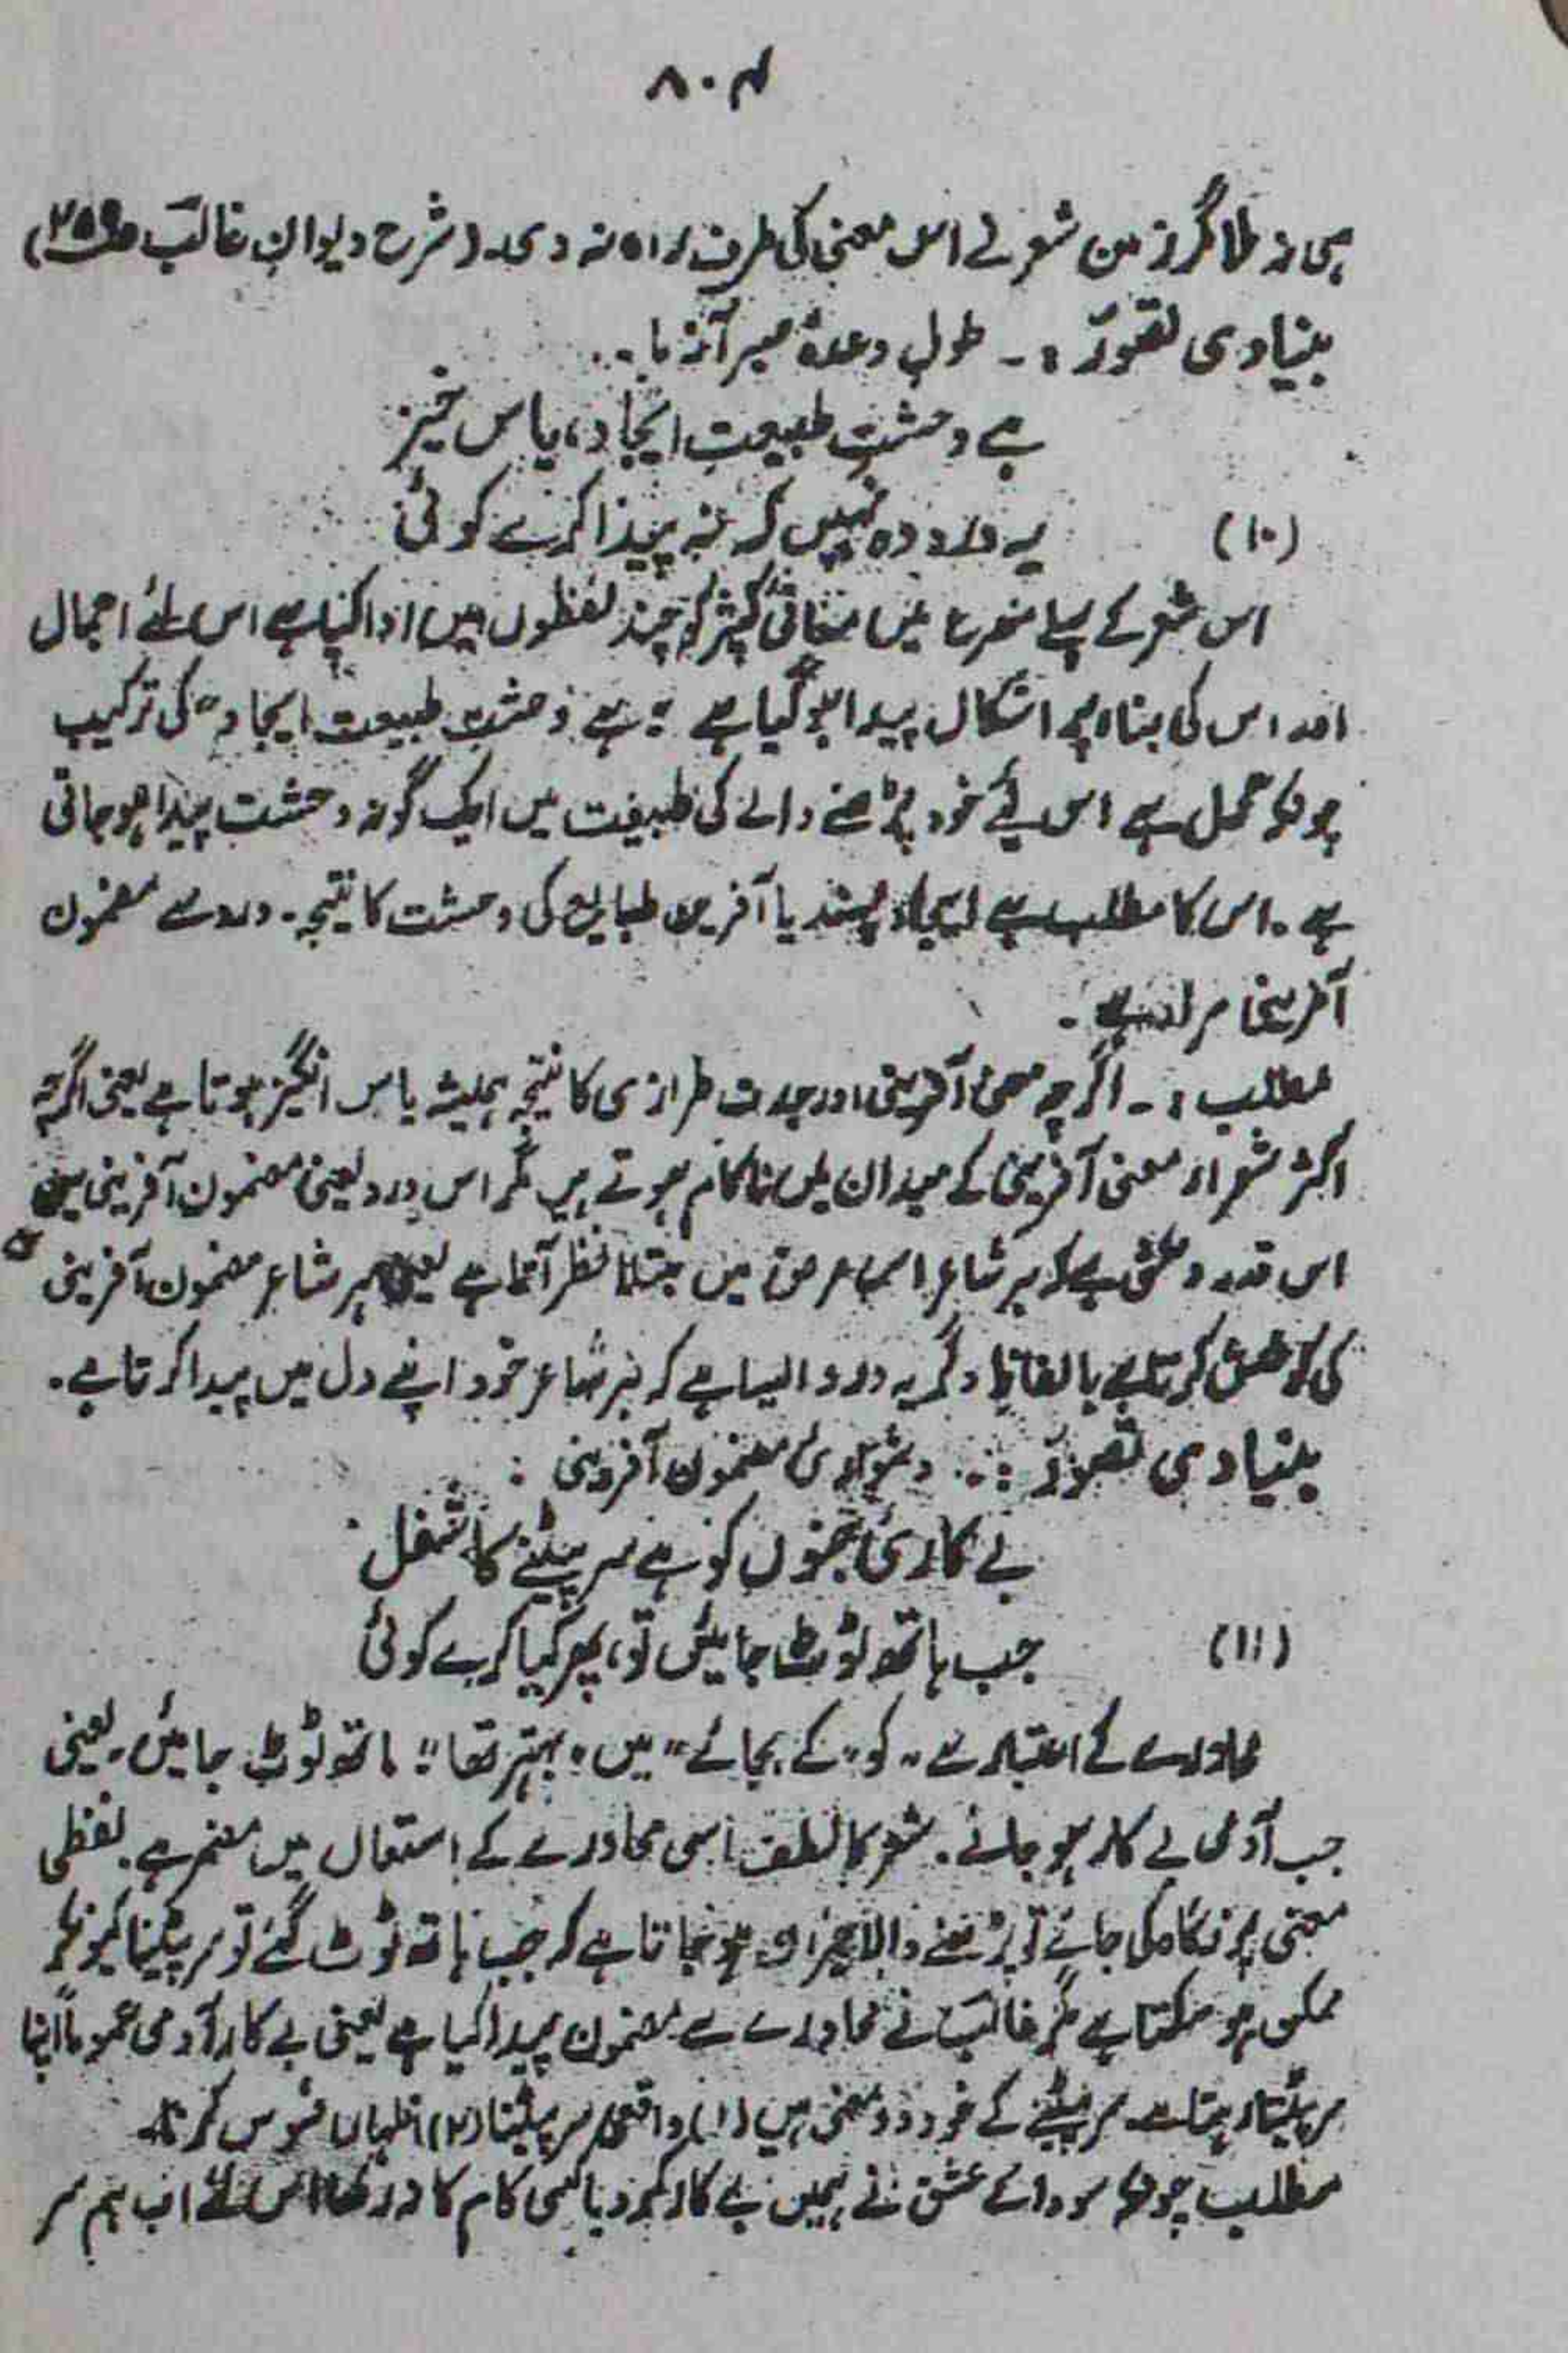 ۸۰۴
ہی نہ ملا مگر ذہن شعر نے اس معنی کی طرف راہ نہ دی۔ (شرح دیوان غالب ص۲۵۹)
بنیادی تصور :۔ طول وعدۂ صبر آزما ۔
ہے وحشت طبیعت ایجاد، یاس خیز
(۱۰) یہ درد وہ نہیں کہ نہ پیدا کرے کوئی
اس شعر کے پہلے مصرعے میں معانی کثیر کو چند لفظوں میں ادا کیا ہے اس لئے اجمال
اور اس کی بناء پر اشکال پیدا ہو گیا ہے "ہے وحشت طبیعت ایجاد" کی ترکیب
چونکہ مجمل ہے اس لیے خود پڑھنے والے کی طبیعت میں ایک گونہ وحشت پیدا ہو جاتی
ہے۔ اس کا مطلب ہے ایجاد پسند یا آفریں طبایع کی وحشت کا نتیجہ۔ درد سے مضمون
آفرینی مراد ہے۔
مطلب :۔ اگرچہ معنی آفرینی اور جدت طرازی کا نتیجہ ہمیشہ یاس انگیز ہوتا ہے یعنی اگرچہ
اکثر شعراء معنی آفرینی کے میدان میں ناکام ہوتے ہیں مگر اس درد یعنی مضمون آفرینی میں
اس قدر دلکشی ہے کہ ہر شاعر اس مرض میں مبتلا نظر آتا ہے یعنی ہر شاعر مضمون آفرینی
کی کوشش کرتا ہے بالفاظ دگر یہ درد ایسا ہے کہ ہر شاعر خود اپنے دل میں پیدا کرتا ہے۔
بنیادی تصور :۔ دشواریٔ مضمون آفرینی :
بے کاریٔ جنوں کو ہے سر پیٹنے کا شغل
(۱۱) جب ہاتھ ٹوٹ جائیں تو، پھر کیا کرے کوئی
محاورے کے اعتبار سے "کو" کے بجائے "میں" بہتر تھا "ہاتھ ٹوٹ جائیں، یعنی
جب آدمی بے کار ہو جائے۔ شعر کا لطف اسی محاورے کے استعمال میں مضمر ہے۔ لفظی
معنی پر نگاہ کی جائے تو پڑھنے والا حیران ہو جاتا ہے کہ جب ہاتھ ٹوٹ گئے تو سر پیٹنا کیونکر
ممکن ہو سکتا ہے مگر غالب نے محاورے سے مضمون پیدا کیا ہے یعنی بے کار آدمی عموماً اپنا
سر پیٹتا رہتا ہے۔ سر پیٹنے کے خود دو معنی ہیں (۱) واقعی سر پیٹنا (۲) اظہار افسوس کرنا۔
مطلب چونکہ سودائے عشق نے ہمیں بے کار کر دیا کسی کام کا نہ رکھا اس لئے اب ہم سر